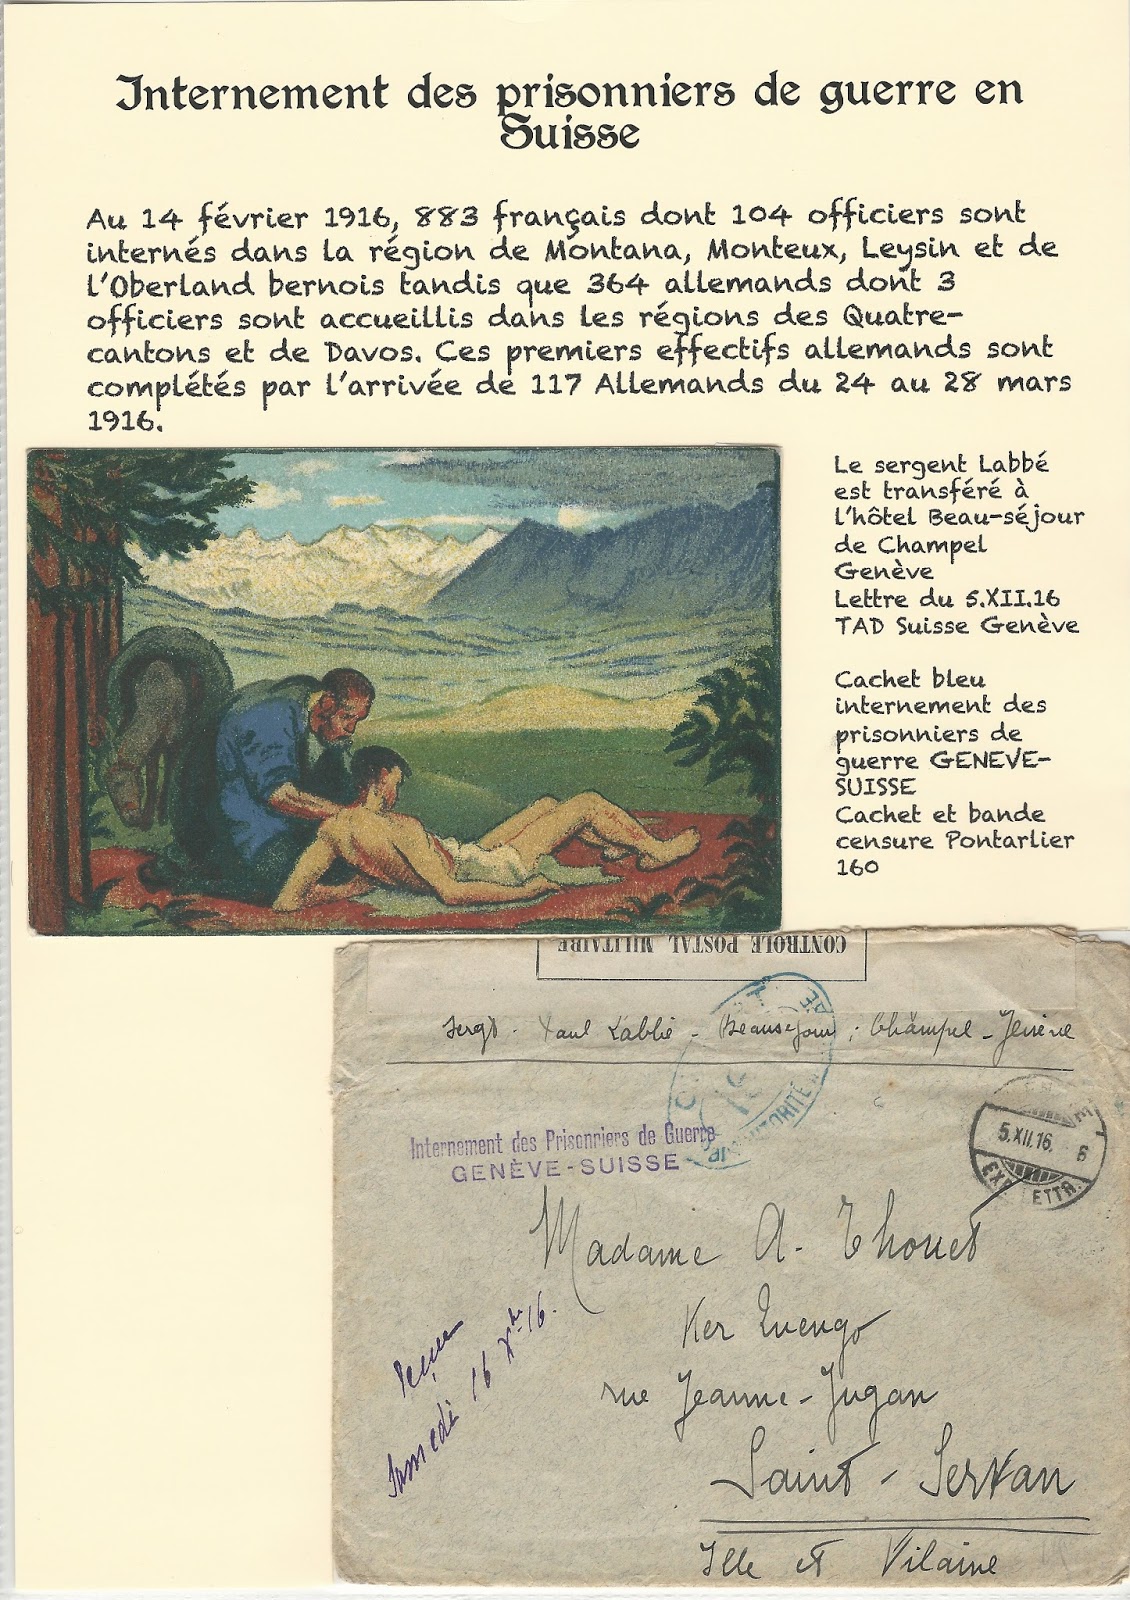 Internement des prisonniers de guerre en
Suisse
Au 14 février 1916, 883 français dont 104 officiers sont
internés dans la région de Montana, Monteux, Leysin et de
l'Oberland bernois tandis que 364 allemands dont 3
officiers sont accueillis dans les régions des Quatre-
cantons et de Davos. Ces premiers effectifs allemands sont
complétés par l'arrivée de 117 Allemands du 24 au 28 mars
1916.
Le sergent Labbé
est transféré à
l'hôtel Beau-séjour
de Champel
Genève
Lettre du 5.XII.16
TAD Suisse Genève
Cachet bleu
internement des
prisonniers de
guerre GENEVE-
SUISSE
Cachet et bande
censure Pontarlier
160
CONTROLE POSTAL MILITAIRE
Sergt. Paul Labbé - Beauséjour; Champel - Genève
Internement des Prisonniers de Guerre
GENÈVE-SUISSE
AUTORITÉ
5.XII.16. 6
Madame A. Thouet
Ker
rue Jeanne-Jugan
Saint-Servan
Ille et Vilaine
reçue
Samedi 16 Xbre 16.